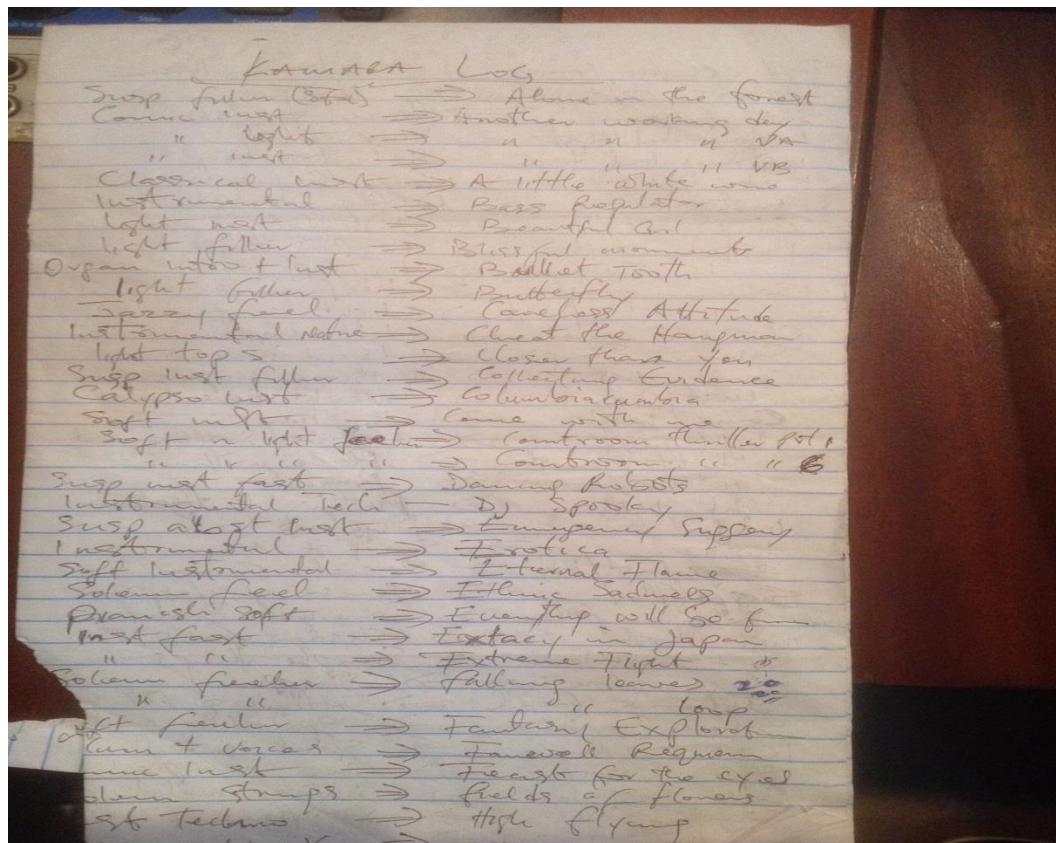 KAMARA LOG
Susp filler (Sofa) ⇒ Alone in the forest
Comic inst ⇒ Another working day
" light ⇒ " " " VA
" inst ⇒ " " " VB
Classical inst ⇒ A little white wine
Instrumental ⇒ Bass Regulator
light inst ⇒ Beautiful Girl
light filler ⇒ Blissful moments
Organ intro + Inst ⇒ Ballet Tooth
light filler ⇒ Butterfly
Jazzy feel ⇒ Careless Attitude
Instrumental Native ⇒ Cheat the Hangman
light tops ⇒ Closer than You
Susp inst filler ⇒ Collecting Evidence
Calypso inst ⇒ Columbiacumbia
Soft inst ⇒ Come with me
Soft n light feeler ⇒ Courtroom thriller pt 1
" " " " ⇒ Courtroom " "
Susp inst fast ⇒ Dancing Robots
Instrumental Tech — DJ Spooky
Susp inst ⇒ Emergency Surgery
Instrumental ⇒ Erotica
Soft Instrumental ⇒ Eternal Flame
Solemn feel ⇒ Ethnic Sadness
soft ⇒ Everything will be
Inst fast ⇒ Extacy in Japan
" " ⇒ Extreme Fight
Solemn feeler ⇒ falling leaves
" " " Loop
feeler ⇒ Fantasy Exploration
+ voices ⇒ Farewell Requiem
Inst ⇒ Feast for the eyes
Strings ⇒ fields of flowers
Techno ⇒ High flying